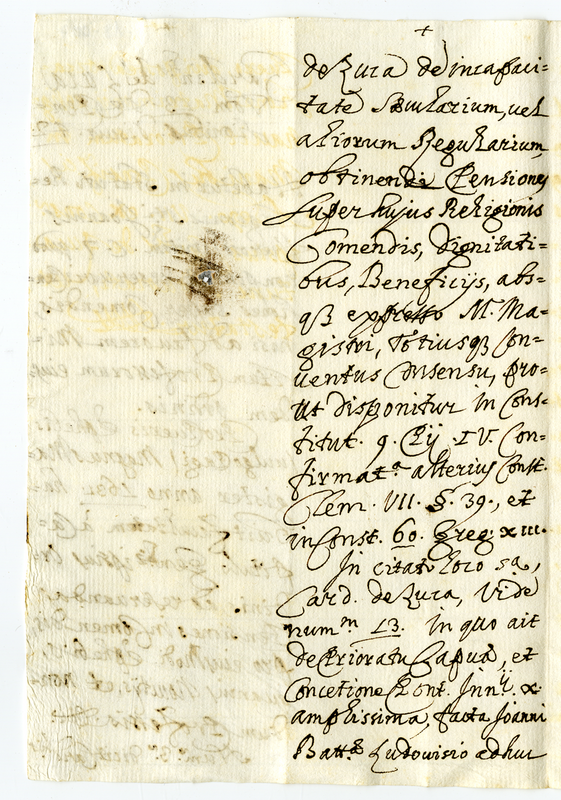 +
de Luca de incapaci=
tate Sæcularium, uel
aliorum Regularium,
obtinendi Pensiones
super hujus Religionis
Comendis, dignitati=
bus, Beneficijs, abs=
qȝ expresso M. Ma=
gistri, Totiusqȝ Con=
uentus Consensu, pro=
ut disponitur in Cons=
titut. 9. Pij IV. Con=
firmat.ª alterius Const.
Clem. VII. §. 39., et
in Const. 60. Greg. XIII.
In citato loco sa,
Card. de Luca, Vide
num.m 13. in quo ait
de Prioratu Capuæ, et
Concetione Pont. Inn.ij X
amplissima, facta Joanni
Batt.æ Ludovisio adhuc